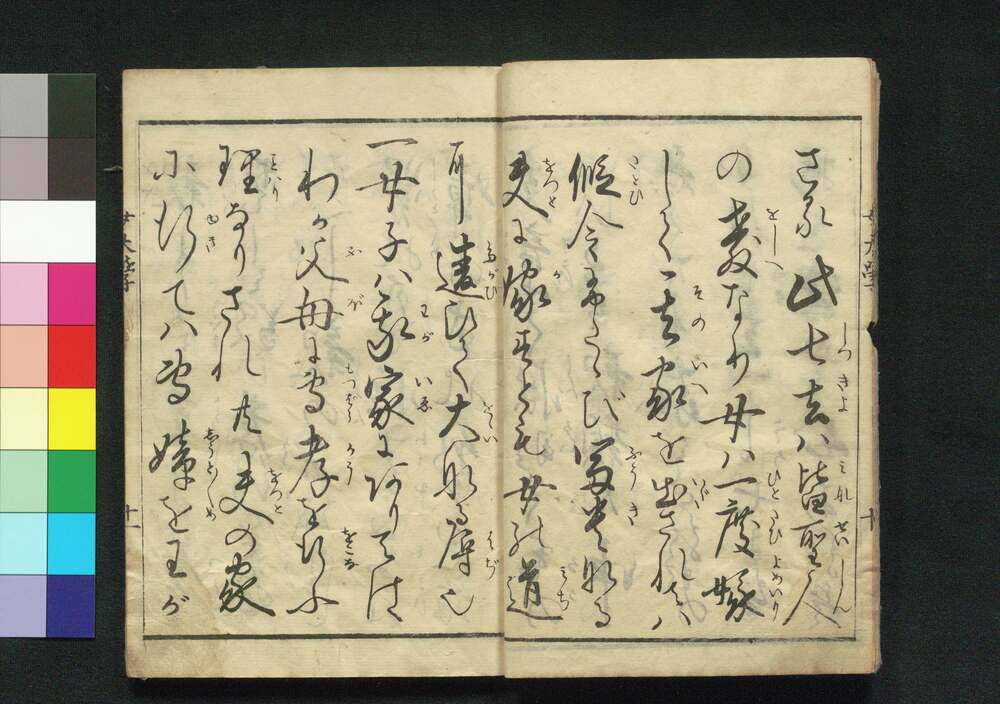 さる此七去ハ皆聖人
の教なり女ハ一度嫁
して其家を出されてハ
假令ふたゝび富貴なる
夫に嫁すとも女の道
に違ひて大なる辱也
一女子ハ我家にありては
わが父母に専孝を行ふ
理なりされ共夫の家
に行てハ専嫜をわが
十一